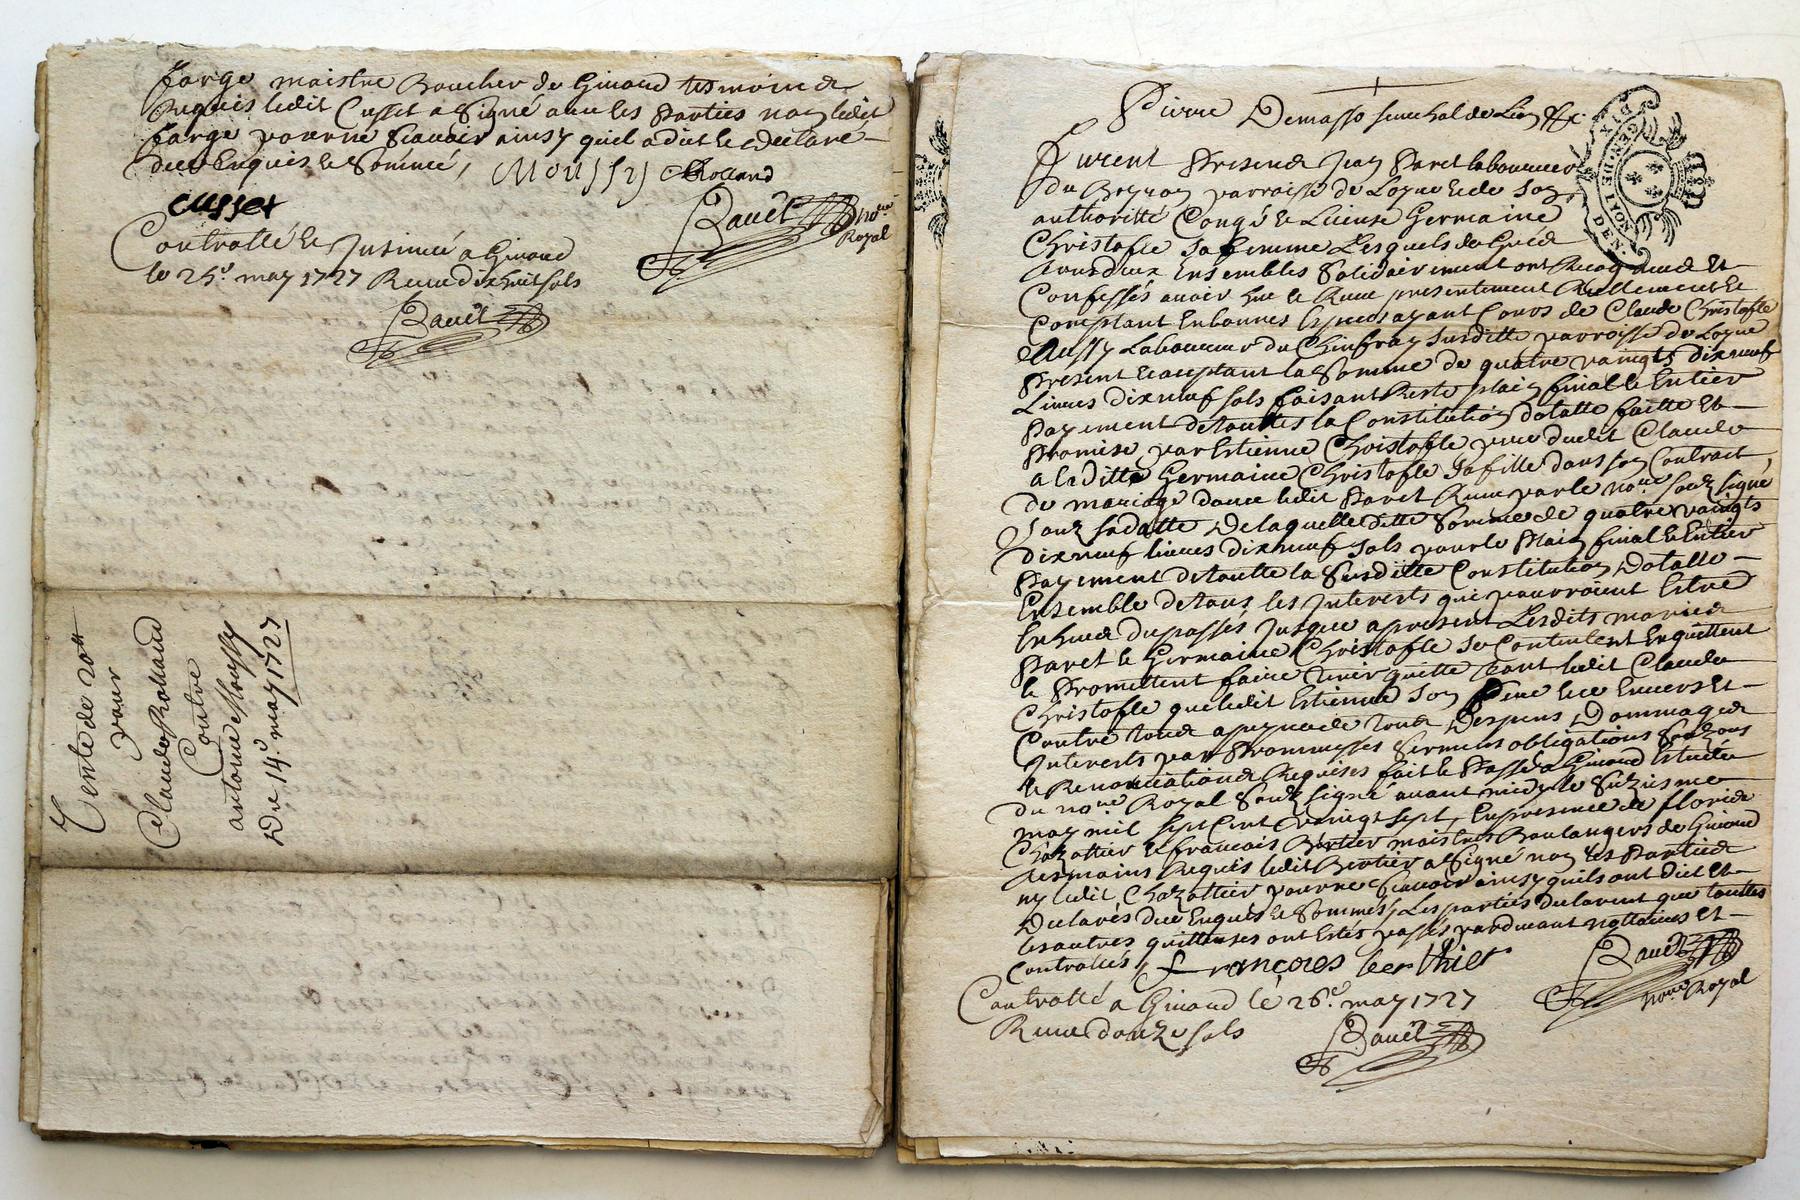 farge maistre Boucher de Giraud tesmoins
Requis ledit Cusset a signé avec les parties non ledit
farge pour ne scavoir ainsy quil a dit et declaré
deub Enquis et Sommé, Moussy CRolland
cusset
Ravel no.re
Royal
Controllé et Insinué a Giraud
le 25.e may 1727 Receu dix huit sols
Ravel
Vente de 20tt
pour
Claude Rolland
Contre
antoine Moussy
Du 14.e may 1727
Pierre Demasso senechal de Lion &c
furent presens Jean Paret laboureur
du parroisse de Logne et de son
authorité Congé et License Germaine
Christofle sa femme Lesquels de gred
tous deux Ensembles Solidairement ont Recognus et
Confessés avoir heu et Receu presentement Reellement et
Comptant En bonnes Especes ayant Cours de Claude Christofle
Aussy Laboureur du susditte parroisse de Logne
present et acceptant la somme de quatre vaingts dixneuf
Livres dixneuf sols faisant Reste plain final et Entier
payement de touttes la Constitution dotalle faitte Et
promise par Estienne Christofle pere dudit Claude
a laditte Germaine Christofle sa fille dans son Contract
de mariage d'avec ledit Paret Receu par le no.re soubsigné
soubz sa datte, De laquelle ditte somme de quatre vaingts
dixneuf livres dixneuf sols pour le plain final et Entier
payement de toutte la susditte Constitution Dotalle
Ensemble de tous les Interests qui pourroient Estre
Enheus du passés jusques a present Lesdits mariés
Paret et Germaine Christofle se Contentent En quittent
et promettent faire tenir quitte tant ledit Claude
Christofle que ledit Estienne son pere et ce Envers Et
Contre tous a peyne de tous Despens Dommages
Interests par Prommesses sermens obligations
et Renonciations Requises fait et Passé a Giraud Estude
du no.re Royal Soubsigné avant midy le
may mil sept Cent vaingt sept, En presence de floris
Chazottier et francois Bertier maistres Boulangers de Giraud
tesmoins Requis ledit Bertier a signé non les Parties
ny ledit Chazottier pour ne scavoir ainsy quils ont dit Et
Declarés deub Enquis et Sommés, Les parties declarent que touttes
les autres quittances ont Estés passés pardevant nottaires et
Controllés, François berthier
Ravel
no.re Royal
Controllé a Giraud le 26.e may 1727
Receu douze sols
Ravel
GEN. DE LION DEN.